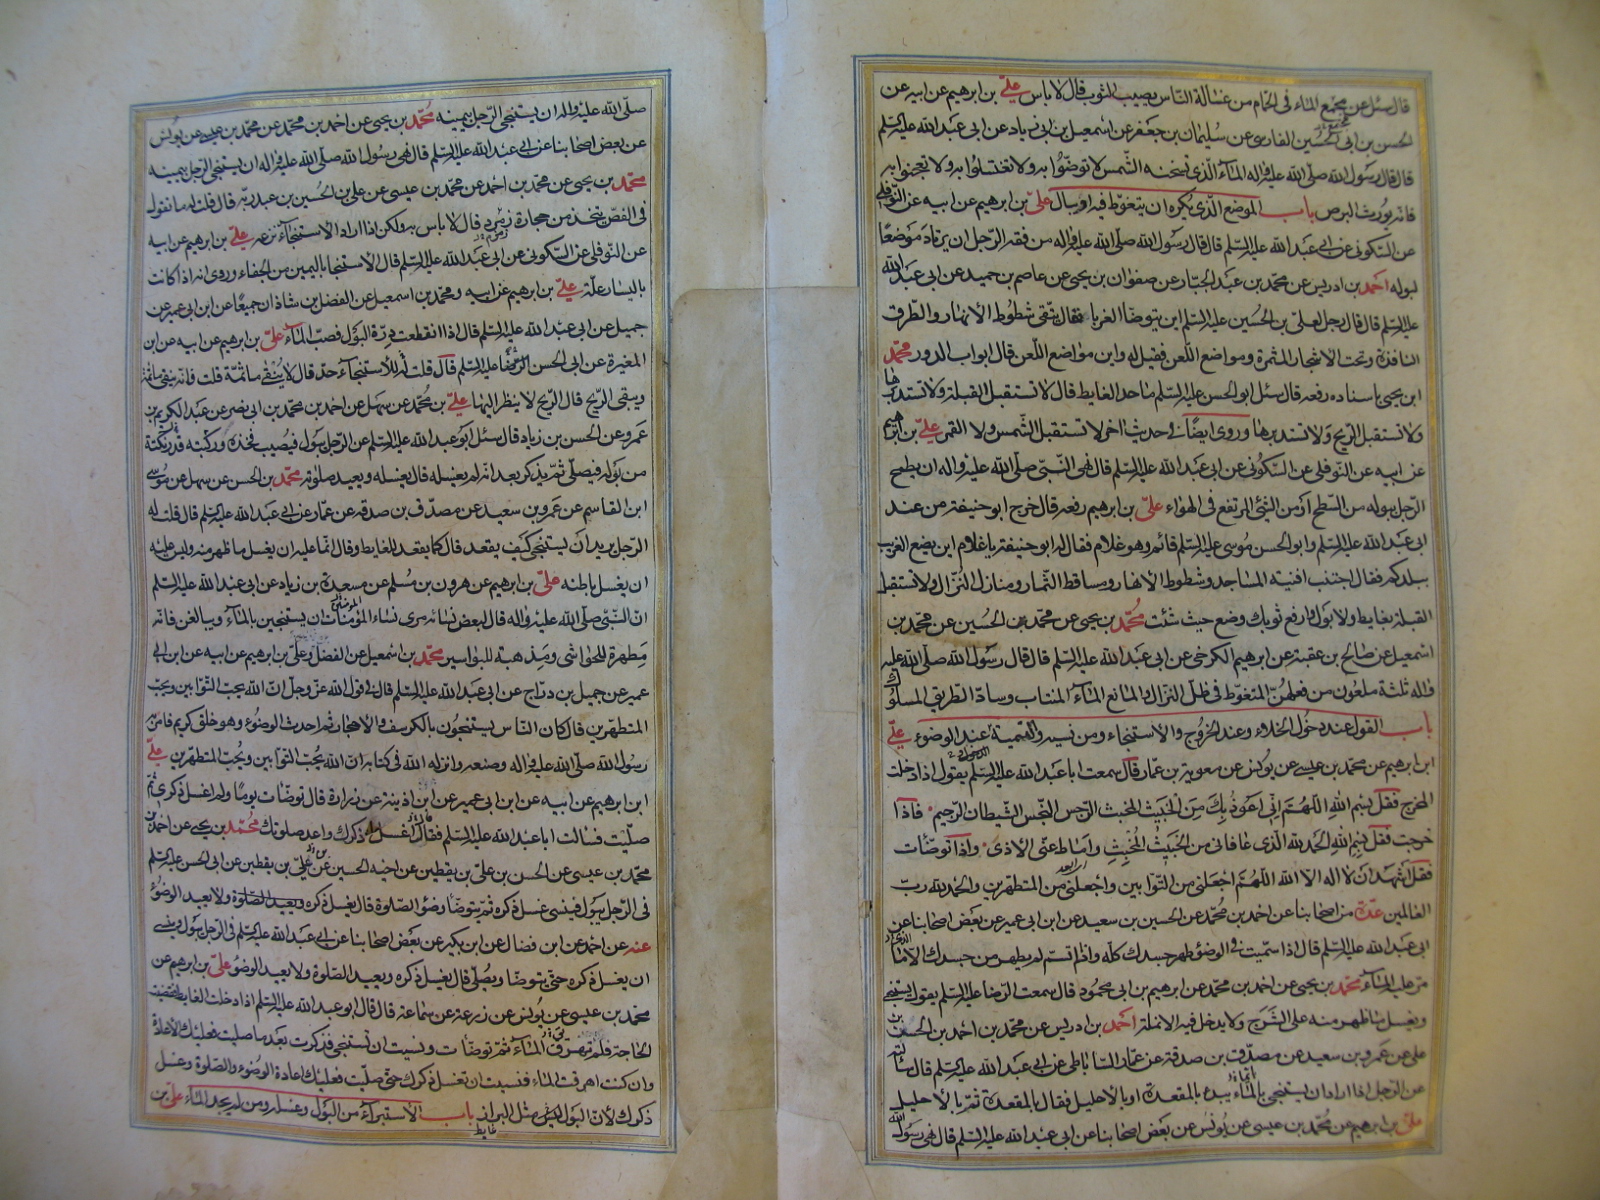 قال سئل عن مجمع الماء فى الحمام من غسالة الناس يصيب الثوب قال لا باس علىّ بن ابرهيم عن ابيه عن
الحسن بن ابى الحسين الفارسى عن سليمان بن جعفر عن اسمعيل بن ابى زياد عن ابى عبد الله عليه السلم
قال قال رسول الله صلى الله عليه واله الماء الذى تسخنه الشمس لا توضؤا به ولا تغتسلوا به ولا تعجنوا به
فانه يورث البرص باب الموضع الذى يكره ان يتغوط فيه او يبال علىّ بن ابرهيم عن ابيه عن النوفلى
عن السكونى عن ابى عبد الله عليه السلم قال قال رسول الله صلى الله عليه واله من فقه الرجل ان يرتاد موضعا
لبوله احمد بن ادريس عن محمد بن عبد الجبار عن صفوان بن يحيى عن عاصم بن حميد عن ابى عبد الله
عليه السلم قال قال رجل لعلى بن الحسين عليه السلم اين يتوضا الغرباء فقال يتقى شطوط الانهار والطرق
النافذة وتحت الاشجار المثمرة ومواضع اللعن فقيل له واين مواضع اللعن قال ابواب الدور محمد
ابن يحيى باسناده رفعه قال سئل ابو الحسن عليه السلم ما حد الغايط قال لا تستقبل القبلة ولا تستدبرها
ولا تستقبل الريح ولا تستدبرها وروى ايضا فى حديث اخر لا تستقبل الشمس ولا القمر علىّ بن ابرهيم
عن ابيه عن النوفلى عن السكونى عن ابى عبد الله عليه السلم قال نهى النبى صلى الله عليه واله ان يطمح
الرجل ببوله من السطح او من الشئ المرتفع فى الهواء علىّ بن ابرهيم رفعه قال خرج ابو حنيفة من عند
ابى عبد الله عليه السلم وابو الحسن موسى عليه السلم قائم وهو غلام فقال له ابو حنيفة يا غلام اين يضع الغريب
ببلدكم فقال اجتنب افنية المساجد وشطوط الانهار ومساقط الثمار ومنازل النزال ولا تستقبل
القبلة بغايط ولا بول وارفع ثوبك وضع حيث شئت محمد بن يحيى عن محمد بن الحسين عن محمد بن
اسمعيل عن صالح بن عقبة عن ابرهيم الكرخى عن ابى عبد الله عليه السلم قال قال رسول الله صلى الله عليه
واله ثلثة ملعون من فعلهن المتغوط فى ظل النزال والمانع الماء المنتاب وساد الطريق المسلوك
باب القول عند دخول الخلاء وعند الخروج والاستنجاء ومن نسيه والتسمية عند الوضوء علىّ
ابن ابرهيم عن محمد بن عيسى عن يونس عن معوية بن عمار قال سمعت ابا عبد الله عليه السلم يقول اذا دخلت
المخرج فقل بسم الله اللهم انى اعوذ بك من الخبيث المخبث الرجس النجس الشيطان الرجيم فاذا
خرجت فقل بسم الله الحمد لله الذى عافانى من الخبيث المخبث واماط عنى الاذى واذا توضات
فقل اشهد ان لا اله الا الله اللهم اجعلنى من التوابين واجعلنى من المتطهرين والحمد لله رب
العالمين عدة من اصحابنا عن احمد بن محمد عن الحسين بن سعيد عن ابن ابى عمير عن بعض اصحابنا عن
ابى عبد الله عليه السلم قال اذا سميت فى الوضوء طهر جسدك كله واذا لم تسم لم يطهر من جسدك الا ما
مر عليه الماء محمد بن يحيى عن احمد بن محمد عن ابرهيم بن ابى محمود قال سمعت الرضا عليه السلم يقول يستنجى
ويغسل ما ظهر منه على الشرج ولا يدخل فيه الانملة احمد بن ادريس عن محمد بن احمد بن الحسن بن
على عن عمرو بن سعيد عن مصدق بن صدقة عن عمار الساباطى عن ابى عبد الله عليه السلم قال سالته
عن الرجل اذا اراد ان يستنجى بالماء يبدء بالمقعدة او بالاحليل فقال بالمقعدة ثم بالاحليل
علىّ بن ابرهيم عن محمد بن عيسى عن يونس عن بعض اصحابنا عن ابى عبد الله عليه السلم قال نهى رسول الله
صلى الله عليه واله ان يستنجى الرجل بيمينه محمد بن يحيى عن احمد بن محمد عن محمد بن عيسى عن يونس
عن بعض اصحابنا عن ابى عبد الله عليه السلم قال نهى رسول الله صلى الله عليه واله ان يستنجى الرجل بيمينه
محمد بن يحيى عن محمد بن احمد عن محمد بن عيسى عن على بن الحسين بن عبد ربه قال قلت له ما تقول
فى الفص يتخذ من حجارة زمرد قال لا باس به ولكن اذا اراد الاستنجاء نزعه علىّ بن ابرهيم عن ابيه
عن النوفلى عن السكونى عن ابى عبد الله عليه السلم قال الاستنجا باليمين من الجفاء وروى انه اذا كانت
باليسار علة علىّ بن ابرهيم عن ابيه ومحمد بن اسمعيل عن الفضل بن شاذان جميعا عن ابن ابى عمير عن
جميل عن ابى عبد الله عليه السلم قال اذا انقطعت درة البول فصب الماء علىّ بن ابرهيم عن ابيه عن ابن
المغيرة عن ابى الحسن الرضا عليه السلم قال قلت له للاستنجاء حد قال لا ينقى ما ثمة قلت فانه ينقى ما ثمة
ويبقى الريح قال الريح لا ينظر اليها علىّ بن محمد عن سهل عن احمد بن محمد بن ابى نصر عن عبد الكريم بن
عمرو عن الحسن بن زياد قال سئل ابو عبد الله عليه السلم عن الرجل يبول فيصيب فخذه وركبته قدر نكتة
من بوله فيصلى ثم يذكر بعد انه لم يغسله قال يغسله ويعيد صلوته محمد بن الحسن عن سهل عن موسى
ابن القاسم عن عمرو بن سعيد عن مصدق بن صدقة عن عمار عن ابى عبد الله عليه السلم قال قلت له
الرجل يريد ان يستنجى كيف يقعد قال كما يقعد للغايط وقال انما عليه ان يغسل ما ظهر منه وليس عليه
ان يغسل باطنه علىّ بن ابرهيم عن هرون بن مسلم عن مسعدة بن زياد عن ابى عبد الله عليه السلم
ان النبى صلى الله عليه واله قال لبعض نسائه مرى نساء المؤمنات ان يستنجين بالماء ويبالغن فانه
مطهرة للحواشى ومذهبة للبواسير محمد بن اسمعيل عن الفضل وعلى بن ابرهيم عن ابيه عن ابن ابى
عمير عن جميل بن دراج عن ابى عبد الله عليه السلم قال فى قول الله عز وجل ان الله يحب التوابين ويحب
المتطهرين قال كان الناس يستنجون بالكرسف والاحجار ثم احدث الوضوء وهو خلق كريم فامر به
رسول الله صلى الله عليه واله وصنعه وانزله الله فى كتابه ان الله يحب التوابين ويحب المتطهرين علىّ
ابن ابرهيم عن ابيه عن ابن ابى عمير عن ابن اذينة عن زرارة قال توضات يوما ولم اغسل ذكرى ثم
صليت فسالت ابا عبد الله عليه السلم فقال اغسل ذكرك واعد صلوتك محمد بن يحيى عن احمد بن
محمد بن عيسى عن الحسن بن على بن يقطين عن اخيه الحسين عن على بن يقطين عن ابى الحسن عليه السلم
فى الرجل يبول فينسى غسل ذكره ثم يتوضا وضوء الصلوة قال يغسل ذكره ويعيد الصلوة ولا يعيد الوضوء
عنه عن احمد عن ابن فضال عن ابن بكير عن بعض اصحابنا عن ابى عبد الله عليه السلم فى الرجل يبول وينسى
ان يغسل ذكره حتى يتوضا ويصلى قال يغسل ذكره ويعيد الصلوة ولا يعيد الوضوء علىّ بن ابرهيم عن
محمد بن عيسى عن يونس عن زرعة عن سماعة قال قال ابو عبد الله عليه السلم اذا دخلت الغايط فقضيت
الحاجة فلم تهرق الماء ثم توضات ونسيت ان تستنجى فذكرت بعد ما صليت فعليك الاعادة
وان كنت اهرقت الماء فنسيت ان تغسل ذكرك حتى صليت فعليك اعادة الوضوء والصلوة وغسل
ذكرك لان البول ليس مثل البراز باب الاستبراء من البول وغسله ومن لم يجد الماء علىّ بن
غايط